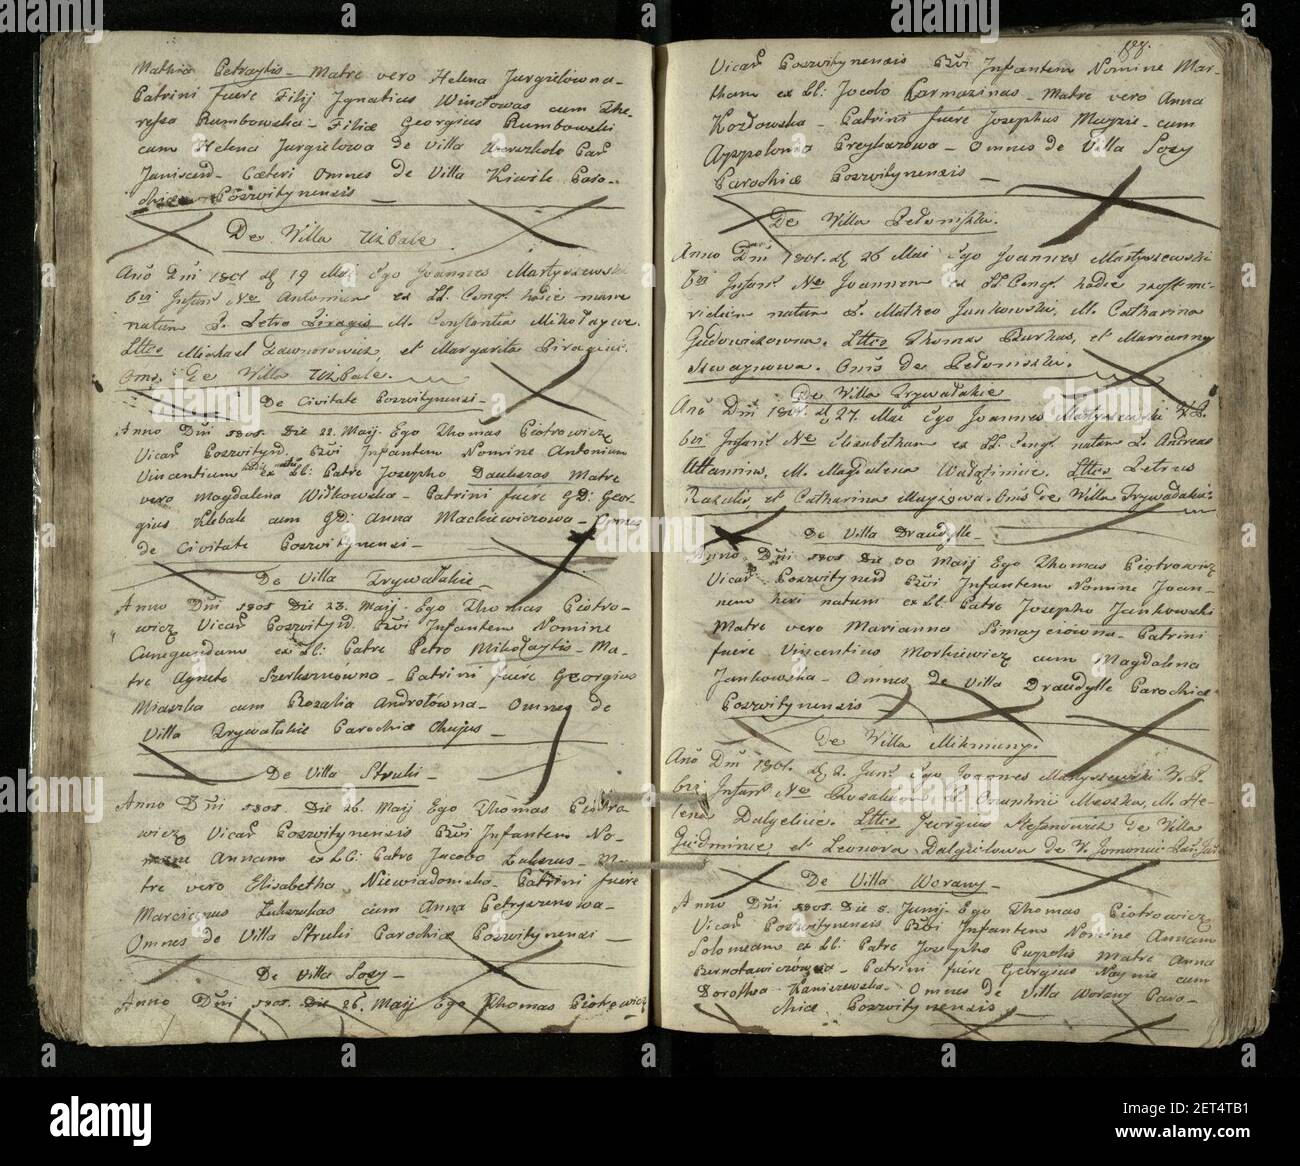 Mathia Petraytis – Matre vero Helena Jurgielowna –
Patrini fuere Filij Ignatius Winctowas cum The-
ressa Rumbowska – Filiæ Georgius Rumbowski
cum Helena Jurgielowa de Villa
Caeteri Omnes de Villa Kiwile Paro-
chiæ Poszwitynensis –
De Villa Uzbale
Año Dñi 1801 d 19 Maii Ego Joannes Martyszewski
bzi Infant Ne Antonium ex LL. Cong. hodie mane
natum P. Petro Piragis M. Constantia Mikołaiwe.
Lttes Michael Ławnorowicz, et Margarita Piragini.
Oms. De Villa Uzbale.
De Civitate Poszwitynensi –
Anno Dñi 1801 Die 22 Maij Ego Thomas Piotrowicz
Vicař Poszwityn. Bzvi Infantem Nomine Antonium
Vincentium ex LL: Patre Josepho Daukszas Matre
vero Magdalena Wilkowska – Patrini fuére GD: Geor-
gius Klebale cum GD: Anna Mackiewiczowa – Omnes
de Civitate Poszwitynensi –
De Villa Trywałakie –
Anno Dñi 1801 Die 23 Maij Ego Thomas Piotro-
wicz Vicař Poszwityn. Bzvi Infantem Nomine
Cunegundam ex LL: Patre Petro Mikołaytis – Ma-
tre Agneta Szerksznówna – Patrini fuére Georgius
Miaszka cum Rozalia Androłówna – Omnes de
Villa Trywałakie Parochiæ Ehujus –
De Villa Strulii –
Anno Dñi 1801 Die 26 Maij Ego Thomas Piotro-
wicz Vicař Poszwitynensis Bzvi Infantem No-
mine Annam ex LL: Patre Jacobo Lukszas – Ma-
tre vero Elisabetha Niewiadomska – Patrini fuére
Marcianus Lukszkas cum Anna Petryszenowa –
Omnes de Villa Strulii Parochiæ Poszwitynensi –
De Villa Sosy –
Anno Dñi 1801 Die 26 Maij Ego Thomas Piotrowicz
Vicař Poszwitynensis Bzvi Infantem Nomine Mar-
tham ex LL: Jacobo Karmazinas – Matre vero Anna
Kozłowska – Patrini fuére Josephus Muyzis – cum
Appolonia Preykszowa – Omnes de Villa Sosy
Parochiæ Poszwitynensis –
De Villa Pełoniszki.
Anno Dñi 1801 d 26 Maii Ego Joannes Martyszewski
bzi Infant Ne Joannem ex LL Cong. hodie post me-
ridiem natum P. Matheo Junkowski, M. Catharina
Gudowiczowna. Lttes Thomas Burkas, et Marianna
Szwaynowa. OmS de Pełoniszki.
De Villa Trywałakie
Año Dñi 1801 d 27 Maii Ego Joannes Martyszewski V. P.
bzi Infant Ne Elizabetham ex LL. Cong. natam P. Andreas
Attamin, M. Magdalena Lttes Petrus
et Catharina Muyzowa. OmS de Villa Trywałakie.
De Villa Draudylle –
Anno Dñi 1801 Die 30 Maij Ego Thomas Piotrowicz
Vicař Poszwityn Bzvi Infantem Nomine Joan-
nem heri natum ex LL. Patre Josepho Jankowski
Matre vero Marianna Simayciówna – Patrini
fuére Vincentius Morkiewicz cum Magdalena
Jankowska – Omnes De Villa Draudylle Parochiæ
Poszwitynensis
De Villa Mikmiuny.
Año Dñi 1801 d 2 Junii Ego Joannes Martyszewski V. P.
bzi Infant Ne Rozaliam P. Onuphrii Meszka, M. He-
lena Dalgelicie. Lttes Georgius Stefanowicz de Villa
Guidminie, et Leonora Dalgiełowa de V.
De Villa Worany –
Anno Dñi 1801 Die 5 Junij Ego Thomas Piotrowicz
Vicař Poszwitynensis Bzvi Infantem Nomine Annam
Solomeam ex LL: Patre Josepho Puzpolis Matre Anna
Bernotawiczówna – Patrini fuére Georgius Naynis cum
Dorothea Kaniszewska – Omnes de Villa Worany Paro-
chiæ Poszwitynensis –
a
alamy
a
alamy
a
a
alamy
Image ID: 2ET4TB1
www.alamy.com